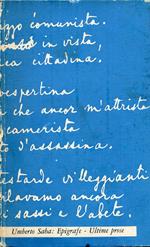 zzo comunista.
in vista,
ca cittadina.
vespertina
che ancor m'attrista
camerista
o d'assassina.
testarde villeggianti
lavano ancora
i sassi e l'abete.
Umberto Saba: Epigrafe - Ultime prose